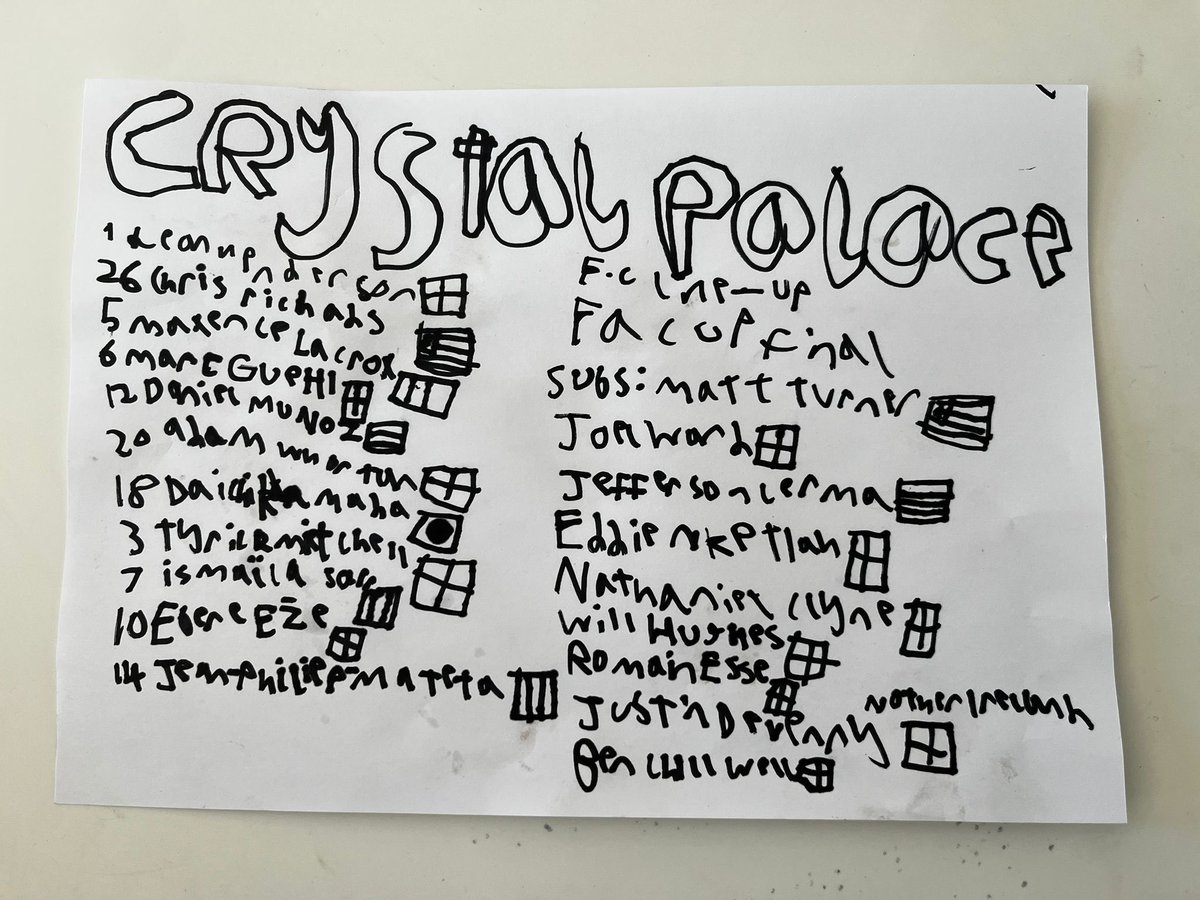 CRYStal Palace
1 Dean henderson
26 Chris richads
5 maxence Lacrox
6 marc GueHI
12 Daniel MUNOZ
20 adam wharton
18 Daichi kamaha
3 tyrick mitchell
7 ismaïla sarr
10 Ebere Eze
14 Jean-Philiep-Mateta
F.c line-up
Fa cup final
SUBS: matt turner
Joel ward
Jefferson lerma
Eddie nketiah
Nathaniel Clyne
Will Hughes
Romain Esse
Justin Devenny
Nother Ireland
Ben Chilwell